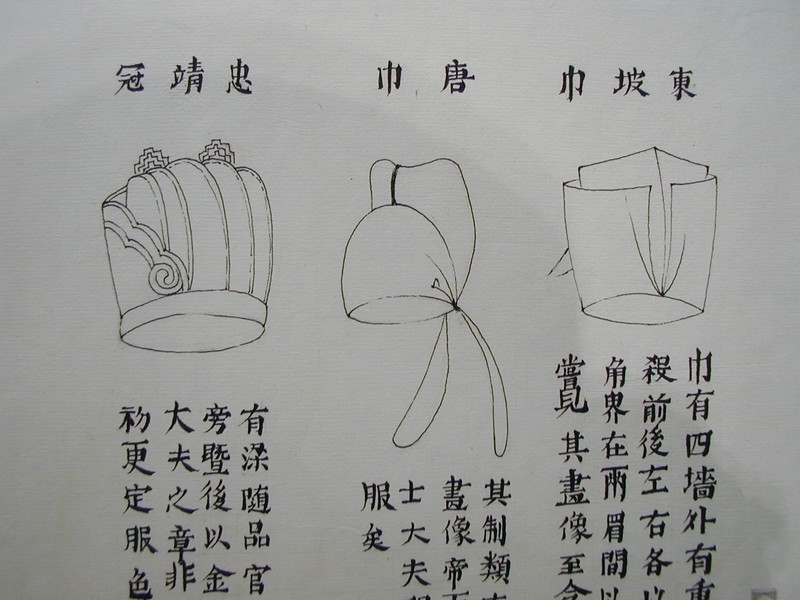 東坡巾
巾有四墻外有重
殺前後左右各以
角界在兩眉間以
嘗見其畫像至今
唐巾
其制類古
畫像帝王
士大夫
服矣
忠靖冠
有梁随品官
旁暨後以金
大夫之章非
初更定服色